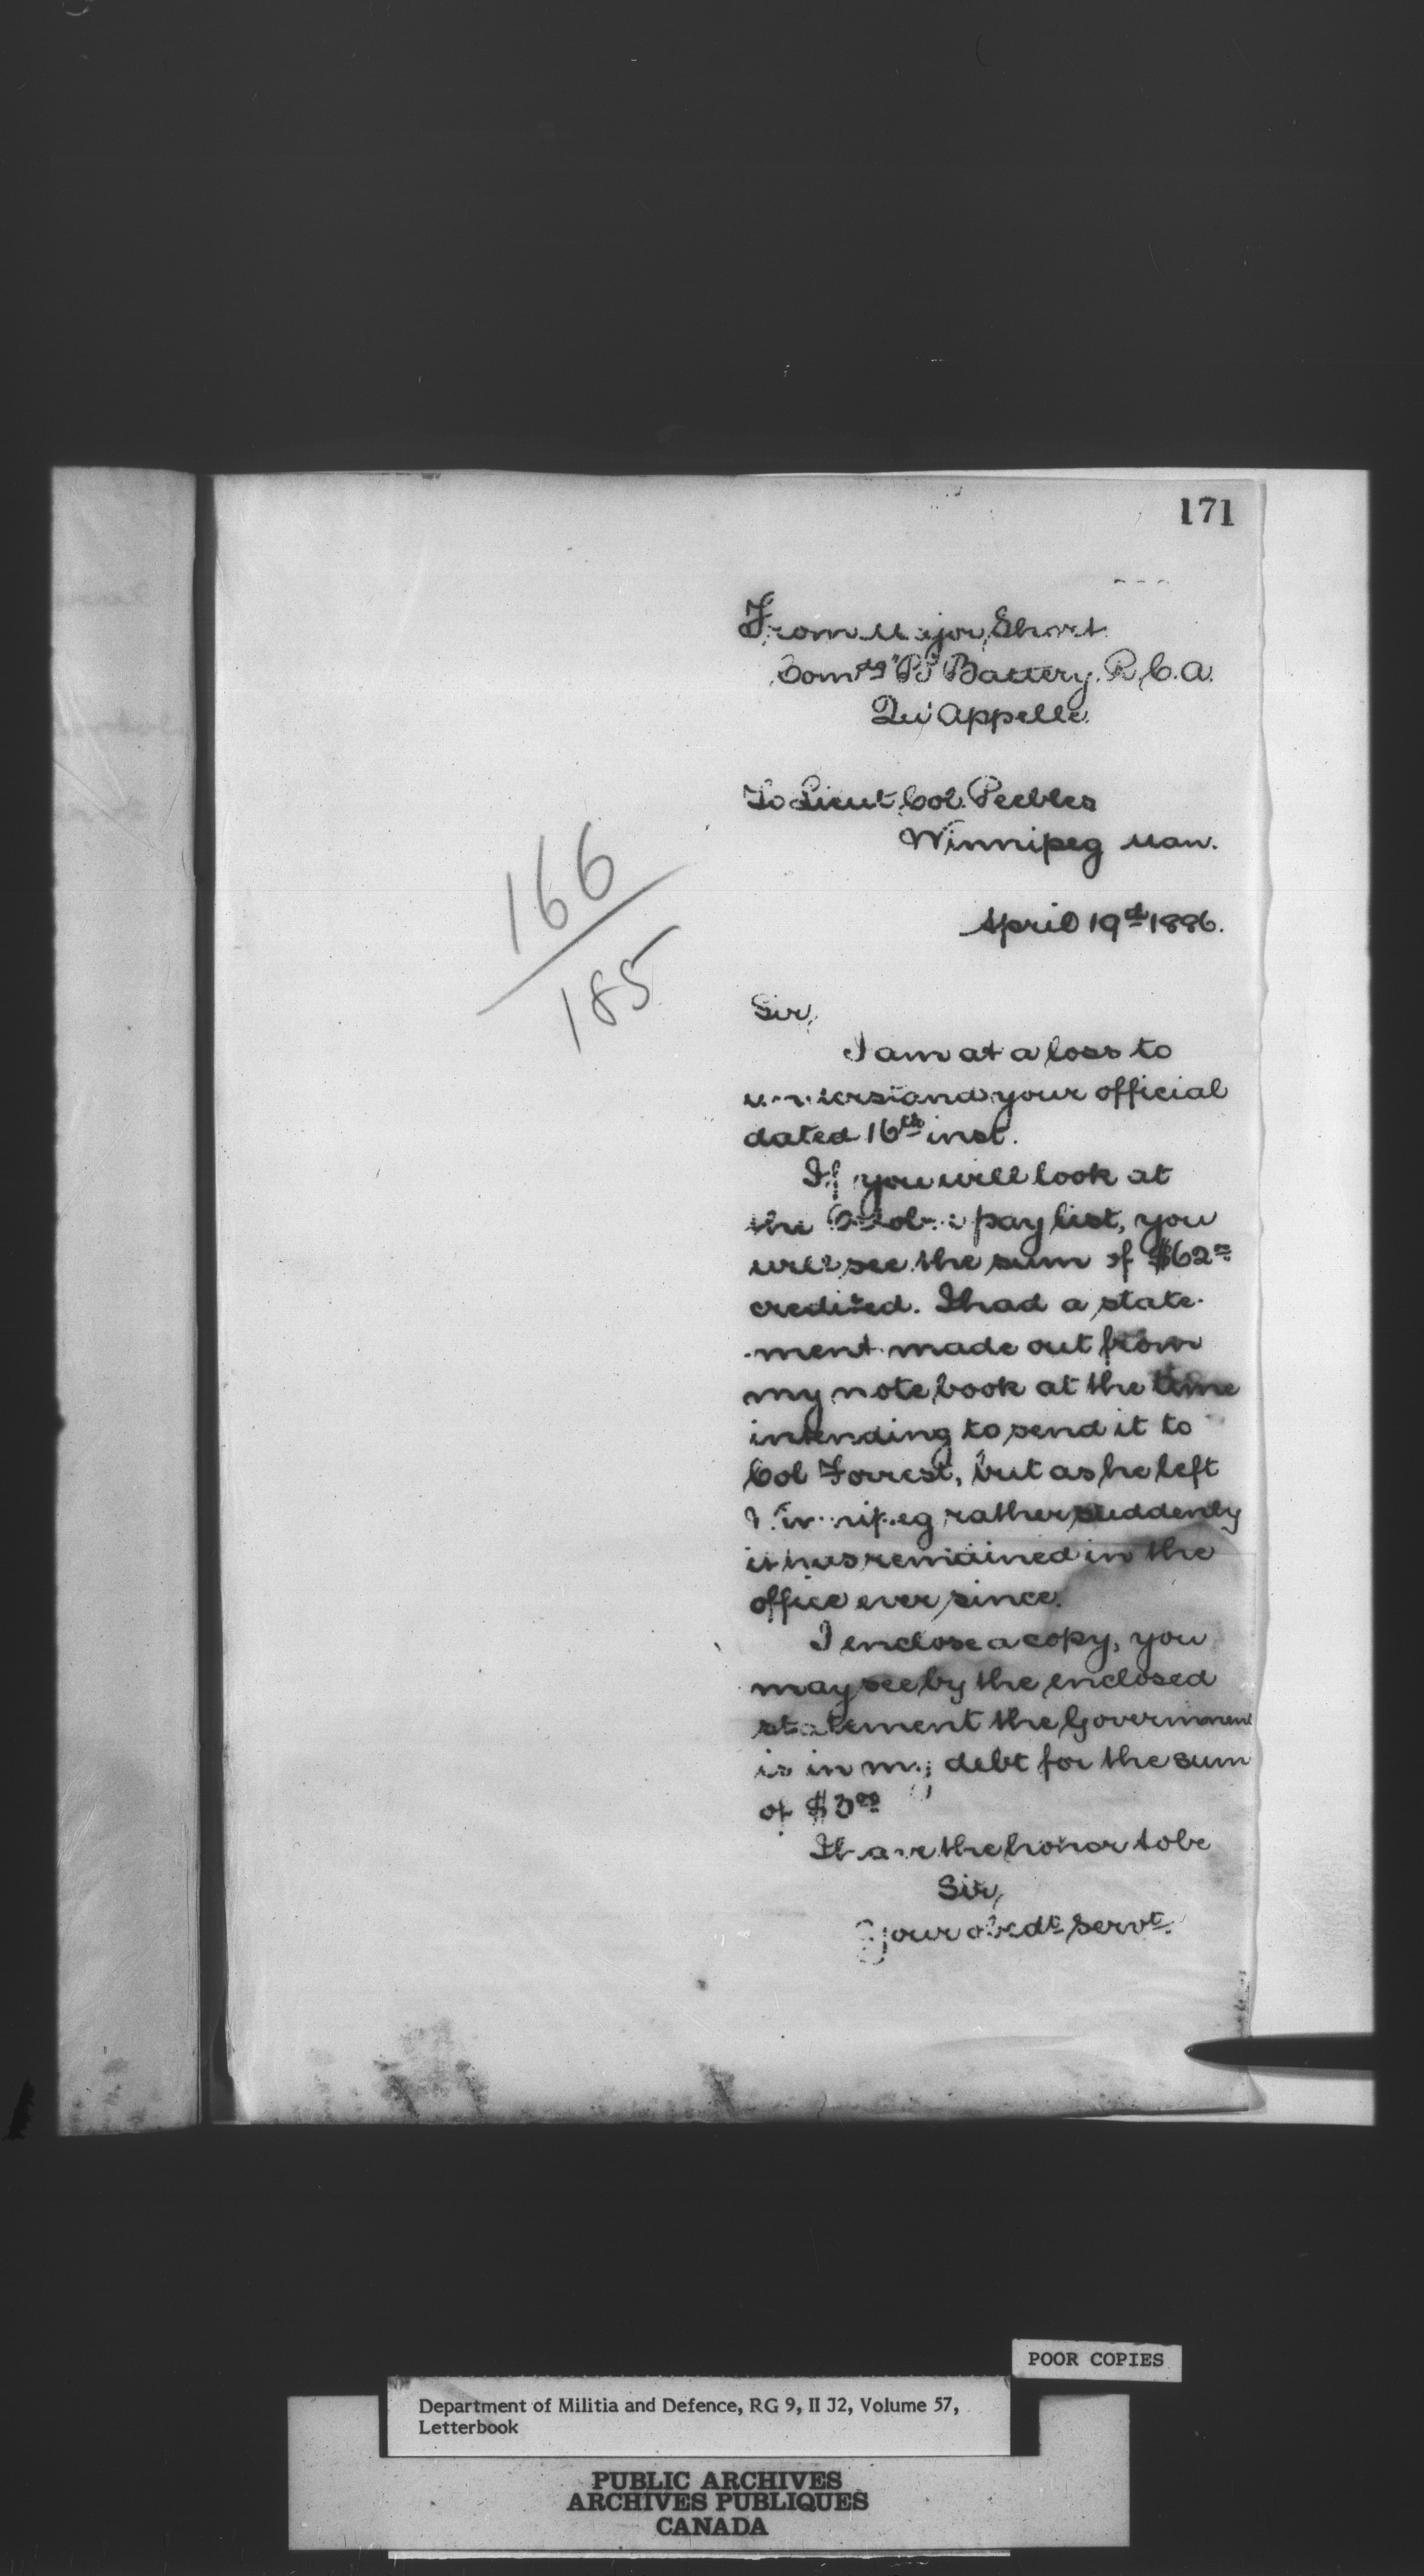 171
From Major Short
Comdg "B" Battery. R. C. A.
Qu'Appelle.
To Lieut. Col. Peebles
Winnipeg Man.
April 19th 1886.
166
185
Sir,
I am at a loss to
understand your official
dated 16th inst.
If you will look at
the October pay list, you
will see the sum of $62
credited. I had a state-
-ment made out from
my note book at the time
intending to send it to
Col Forrest, but as he left
Winnipeg rather suddenly
it has remained in the
office ever since.
I enclose a copy, you
may see by the enclosed
statement the Government
is in my debt for the sum
of $3.00
I have the honor to be
Sir,
Your obedt Servt.
POOR COPIES
Department of Militia and Defence, RG 9, II J2, Volume 57,
Letterbook
PUBLIC ARCHIVES
ARCHIVES PUBLIQUES
CANADA